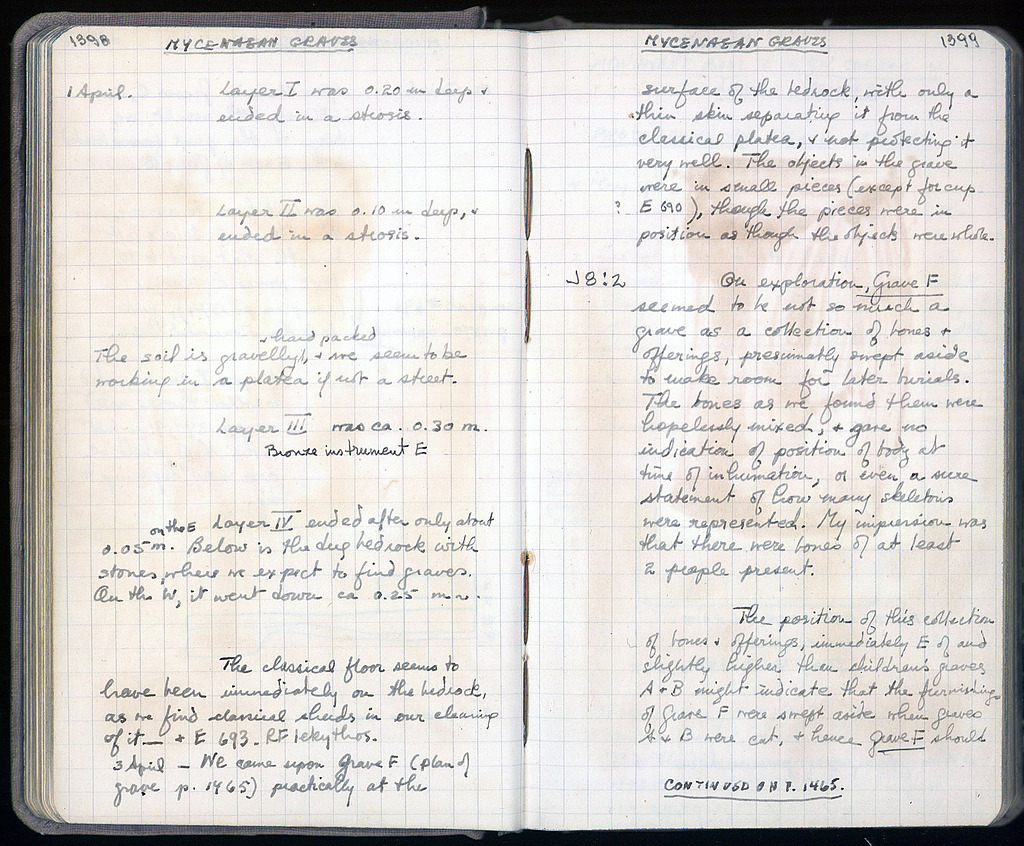 1398
MYCENAEAN GRAVES
1 April.
Layer I was 0.20 m deep &
ended in a strosis.
Layer II was 0.10 m deep, &
ended in a strosis.
& hard packed
The soil is gravelly, & we seem to be
working in a platea if not a street.
Layer III was ca. 0.30 m.
Bronze instrument E
on the E Layer IV ended after only about
0.05 m. Below is the dug bedrock with
stones, where we expect to find graves.
On the W, it went down ca 0.25 m
The classical floor seems to
have been immediately on the bedrock,
as we find classical sherds in our cleaning
of it — & E 693 - RF lekythos.
3 April — We came upon Grave F (plan of
grave p. 1465) practically at the
1399
MYCENAEAN GRAVES
surface of the bedrock, with only a
thin skin separating it from the
classical platea, & not protecting it
very well. The objects in the grave
were in small pieces (except for cup
? E 690), though the pieces were in
position as though the objects were whole.
J 8:2 On exploration, Grave F
seemed to be not so much a
grave as a collection of bones &
offerings, presumably swept aside
to make room for later burials.
The bones as we found them were
hopelessly mixed, & gave no
indication of position of body at
time of inhumation, or even a sure
statement of how many skeletons
were represented. My impression was
that there were bones of at least
2 people present.
The position of this collection
of bones & offerings, immediately E of and
slightly higher than children's graves
A & B might indicate that the furnishings
of grave F were swept aside when graves
A & B were cut, & hence grave F should
CONTINUED ON P. 1465.